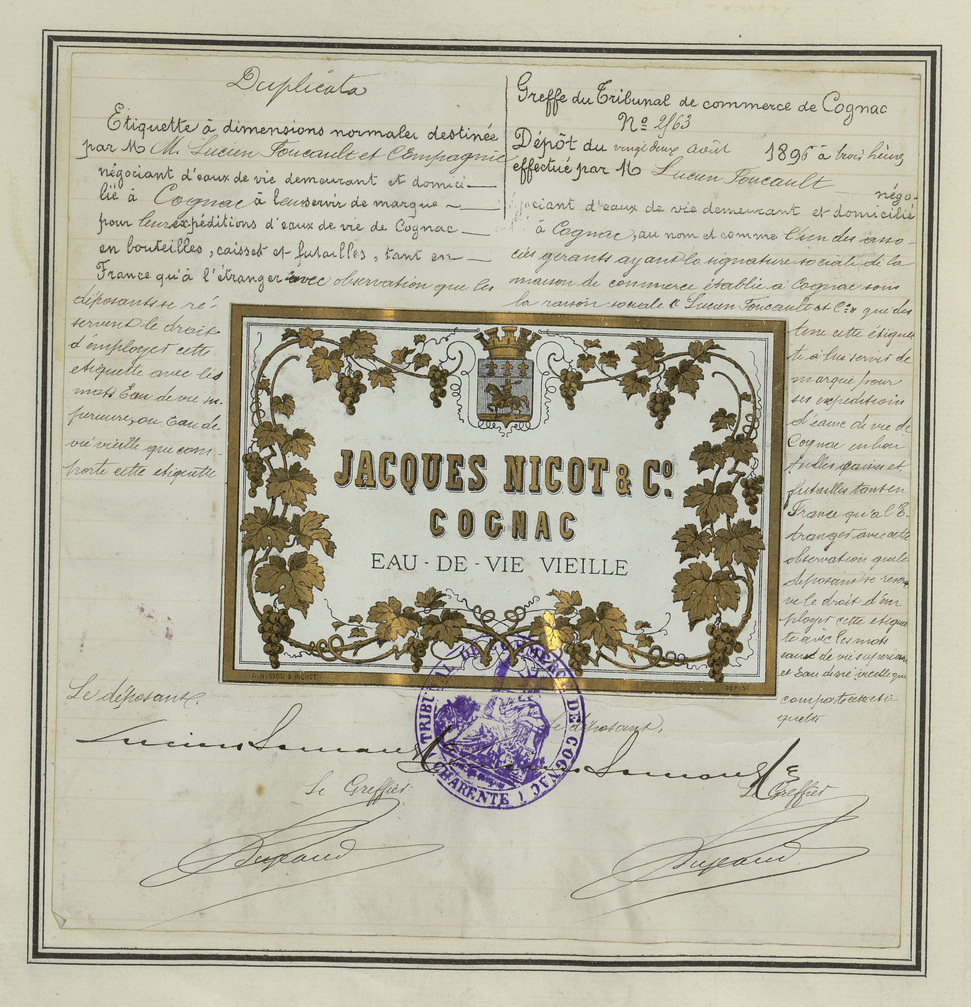 Duplicata
Etiquette à dimensions normales destinée
par M M. Lucien Foucault et Compagnie
négociant d'eaux de vie demeurant et domici-
lié à Cognac à leur servir de marque
pour leurs expéditions d'eaux de vie de Cognac
en bouteilles, caisses et futailles, tant en
France qu'à l'étranger avec observation que les
déposants se ré
servent le droit
d'employer cette
etiquette avec les
mots Eau de vie su
perieure, ou Eau de
vie vieille que com-
porte cette etiquette
Le déposant.
Le Greffier
Greffe du Tribunal de commerce de Cognac
No 2163
Dépôt du vingt deux août 1896 à trois heures
effectué par M Lucien Foucault négo-
ciant d'eaux de vie demeurant et domicilié
à Cognac, au nom et comme l'un des asso-
ciés gerants ayant la signature sociale de la
maison de commerce établie à Cognac sous
la raison sociale "Lucien Foucault et Cie" que des
tine cette étique
te à lui servir de
marque pour
ses expeditions
d'eaux de vie de
Cognac en bou
teilles caisses et
futailles tant en
France qu'à l'E
tranger avec cette
observation que le
deposant se reser
ve le droit d'em
ployer cette etique
te avec les mots
eau de vie superieure
et Eau de vie vieille que
comporte cette éti
quette
Le déposant,
Le Greffier
JACQUES NICOT & Co.
COGNAC
EAU-DE-VIE VIEILLE
DÉPOSÉ
TRIBUNAL DE COMMERCE DE COGNAC
(CHARENTE)